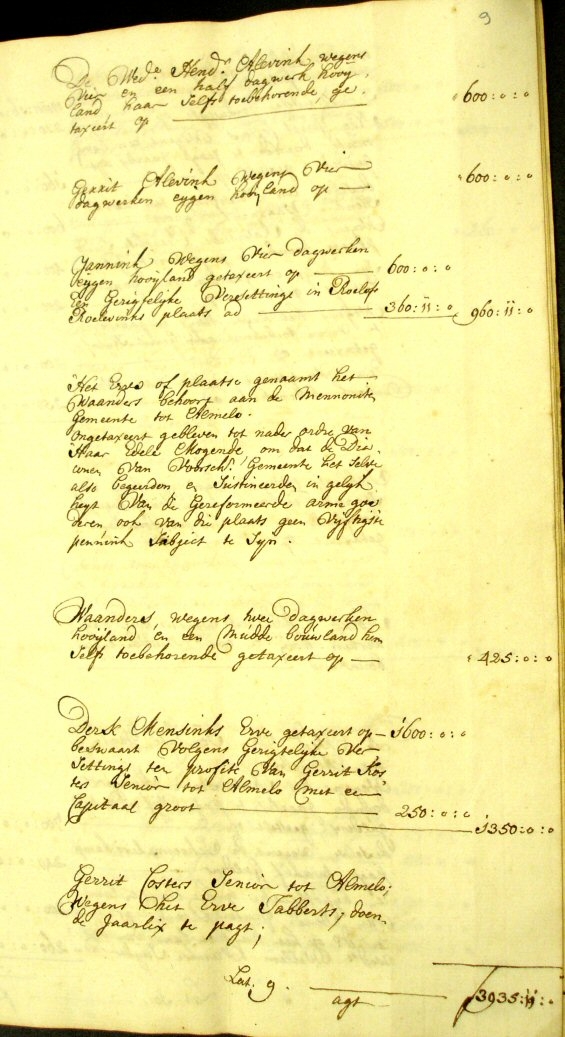 9
De Wed.e Hend.r Alevink wegens
Vier en een half dagwerk hooy
land haar Selfs toebehorende, ge-
taxeert op 600:0:0
Gerrit Alevink Wegens Vier
dagwerken eygen hooyland op 600:0:0
Jannink Wegens Vier dagwerken
eygen hooyland getaxeert op 600:0:0
en Gerigtelijke Versettinge in Roelof
Roelvinks plaats ad 360:11:0 960:11:0
Het Erve of plaatse genaamt het
Waanders behoort aan de Mennonite
Gemeente tot Almelo.
ongetaxeert gebleven tot nader ordre van
Haar Edele Mogende om dat de Dia-
conen Van Voorsch. Gemeente het Selve
also begeerden en Sustineerden in gelyk
heyt Van de Gereformeerde arme goe
deren ook van die plaats geen Vyftigste
pennink Subject te Syn.
Waanders, wegens twee dagwerken
hooijland en een Mudde bouwland hem
Selfs toebehorende getaxeert op 425:0:0
Derk Mensinks Erve getaxeert op 1600:0:0
beswaart Volgens Gerigtelijke Ver
Settinge ten profite Van Gerrit Kos-
ters Senior tot Almelo met een
Capitaal groot 250:0:0
1350:0:0
Gerrit Costers Senior tot Almelo,
Wegens het Erve Tabberts, doen-
de Jaarlix te pagt;
Lat. 9. agt 3935:11:0